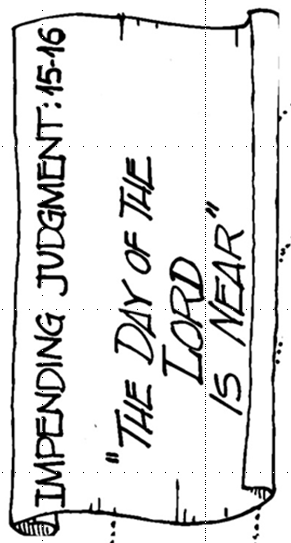 IMPENDING JUDGMENT: 15-16
"THE DAY OF THE
LORD
IS NEAR"